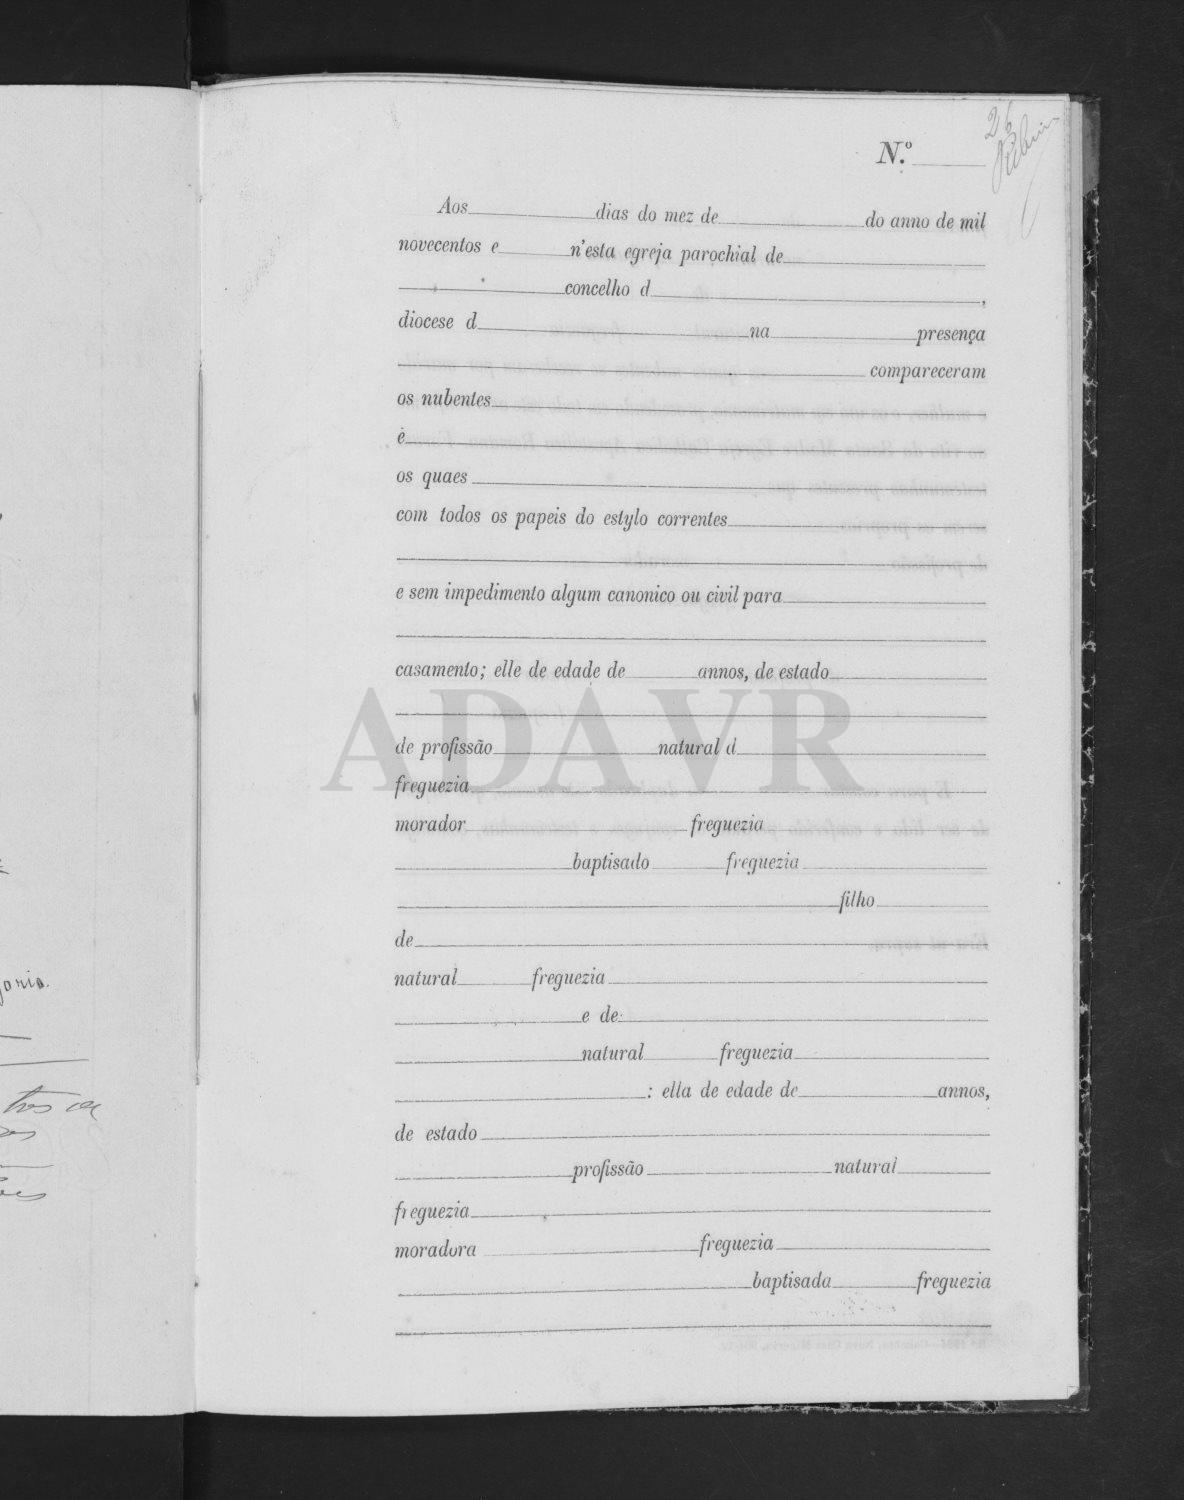 26
N.º
Aos dias do mez de do anno de mil
novecentos e n'esta egreja parochial de
concelho d ,
diocese d na presença
compareceram
os nubentes
e
os quaes
com todos os papeis do estylo correntes
e sem impedimento algum canonico ou civil para
casamento; elle de edade de annos, de estado
ADAVR
de profissão natural d
freguezia
morador freguezia
baptisado freguezia
filho
de
natural freguezia
e de
natural freguezia
: ella de edade de annos,
de estado
profissão natural
freguezia
moradora freguezia
baptisada freguezia